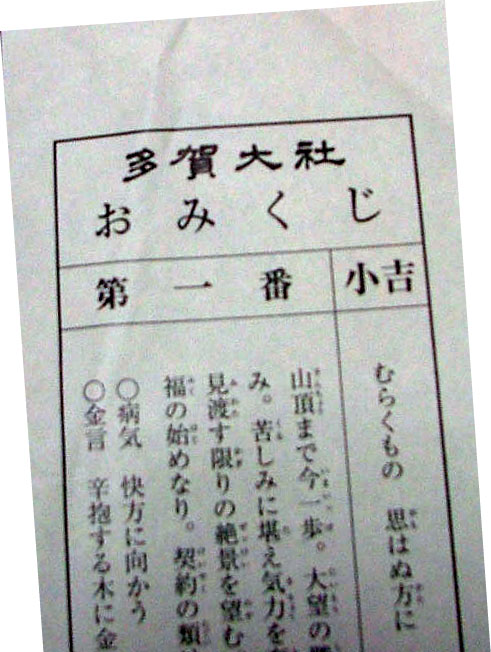 多賀大社
おみくじ
第一番
小吉
むらくもの 思はぬ方に
山頂まで今一歩。大望の
み。苦しみに堪え気力を
見渡す限りの絶景を望む
福の始めなり。契約の類
○病気 快方に向かう
○金言 辛抱する木に金